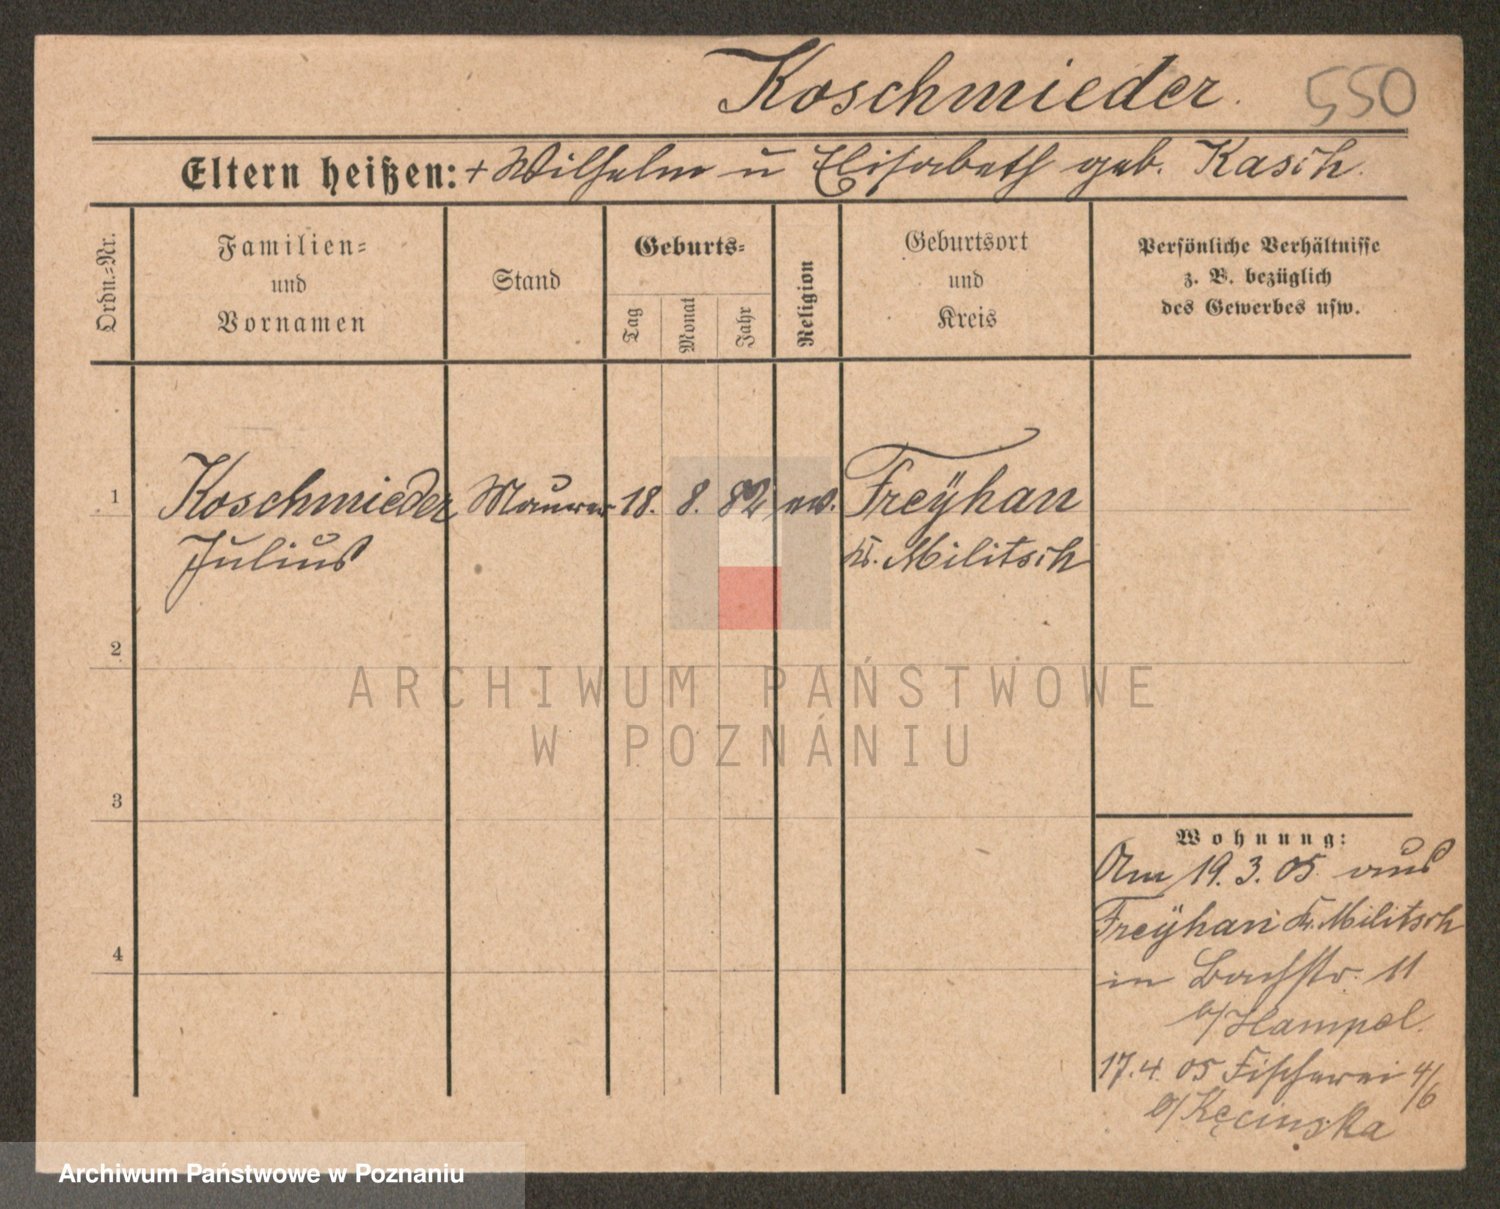 Koschmieder. 550
Eltern heißen: + Wilhelm u Elisabeth geb. Kasch.
Ordn.=Nr.
Familien=
und
Vornamen
Stand
Geburts=
Tag
Monat
Jahr
Religion
Geburtsort
und
Kreis
Persönliche Verhältnisse
z. B. bezüglich
des Gewerbes usw.
1 Koschmieder Maurer 18. 8. 82 ev. Freÿhan
Julius Kr. Militsch
2
3
4
Wohnung:
Am 19. 3. 05 aus
Freÿhan Kr. Militsch
in Bachstr. 11
b/ Hampel.
17. 4. 05 Fischerei 4/6
b/ Kęcinska
ARCHIWUM PAŃSTWOWE
W POZNANIU
Archiwum Państwowe w Poznaniu